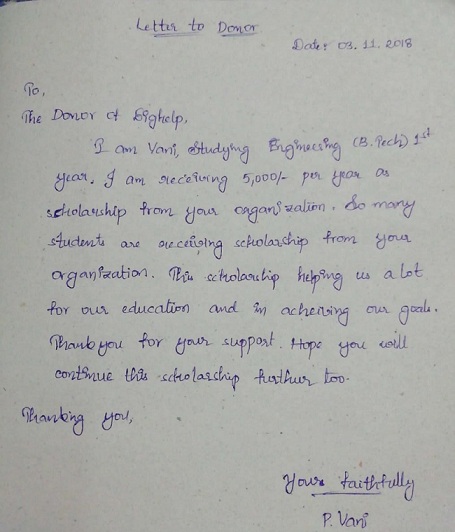 Letter to Donor
Date: 03.11.2018
To,
The Donor of Bighelp,
I am Vani, studying Engineering (B.Tech) 1st
year. I am receiving 5,000/- per year as
scholarship from your organization. So many
students are receiving scholarship from your
organization. This scholarship helping us a lot
for our education and in acheiving our goals.
Thank you for your support. Hope you will
continue this scholarship furthur too.
Thanking you,
Yours faithfully
P. Vani